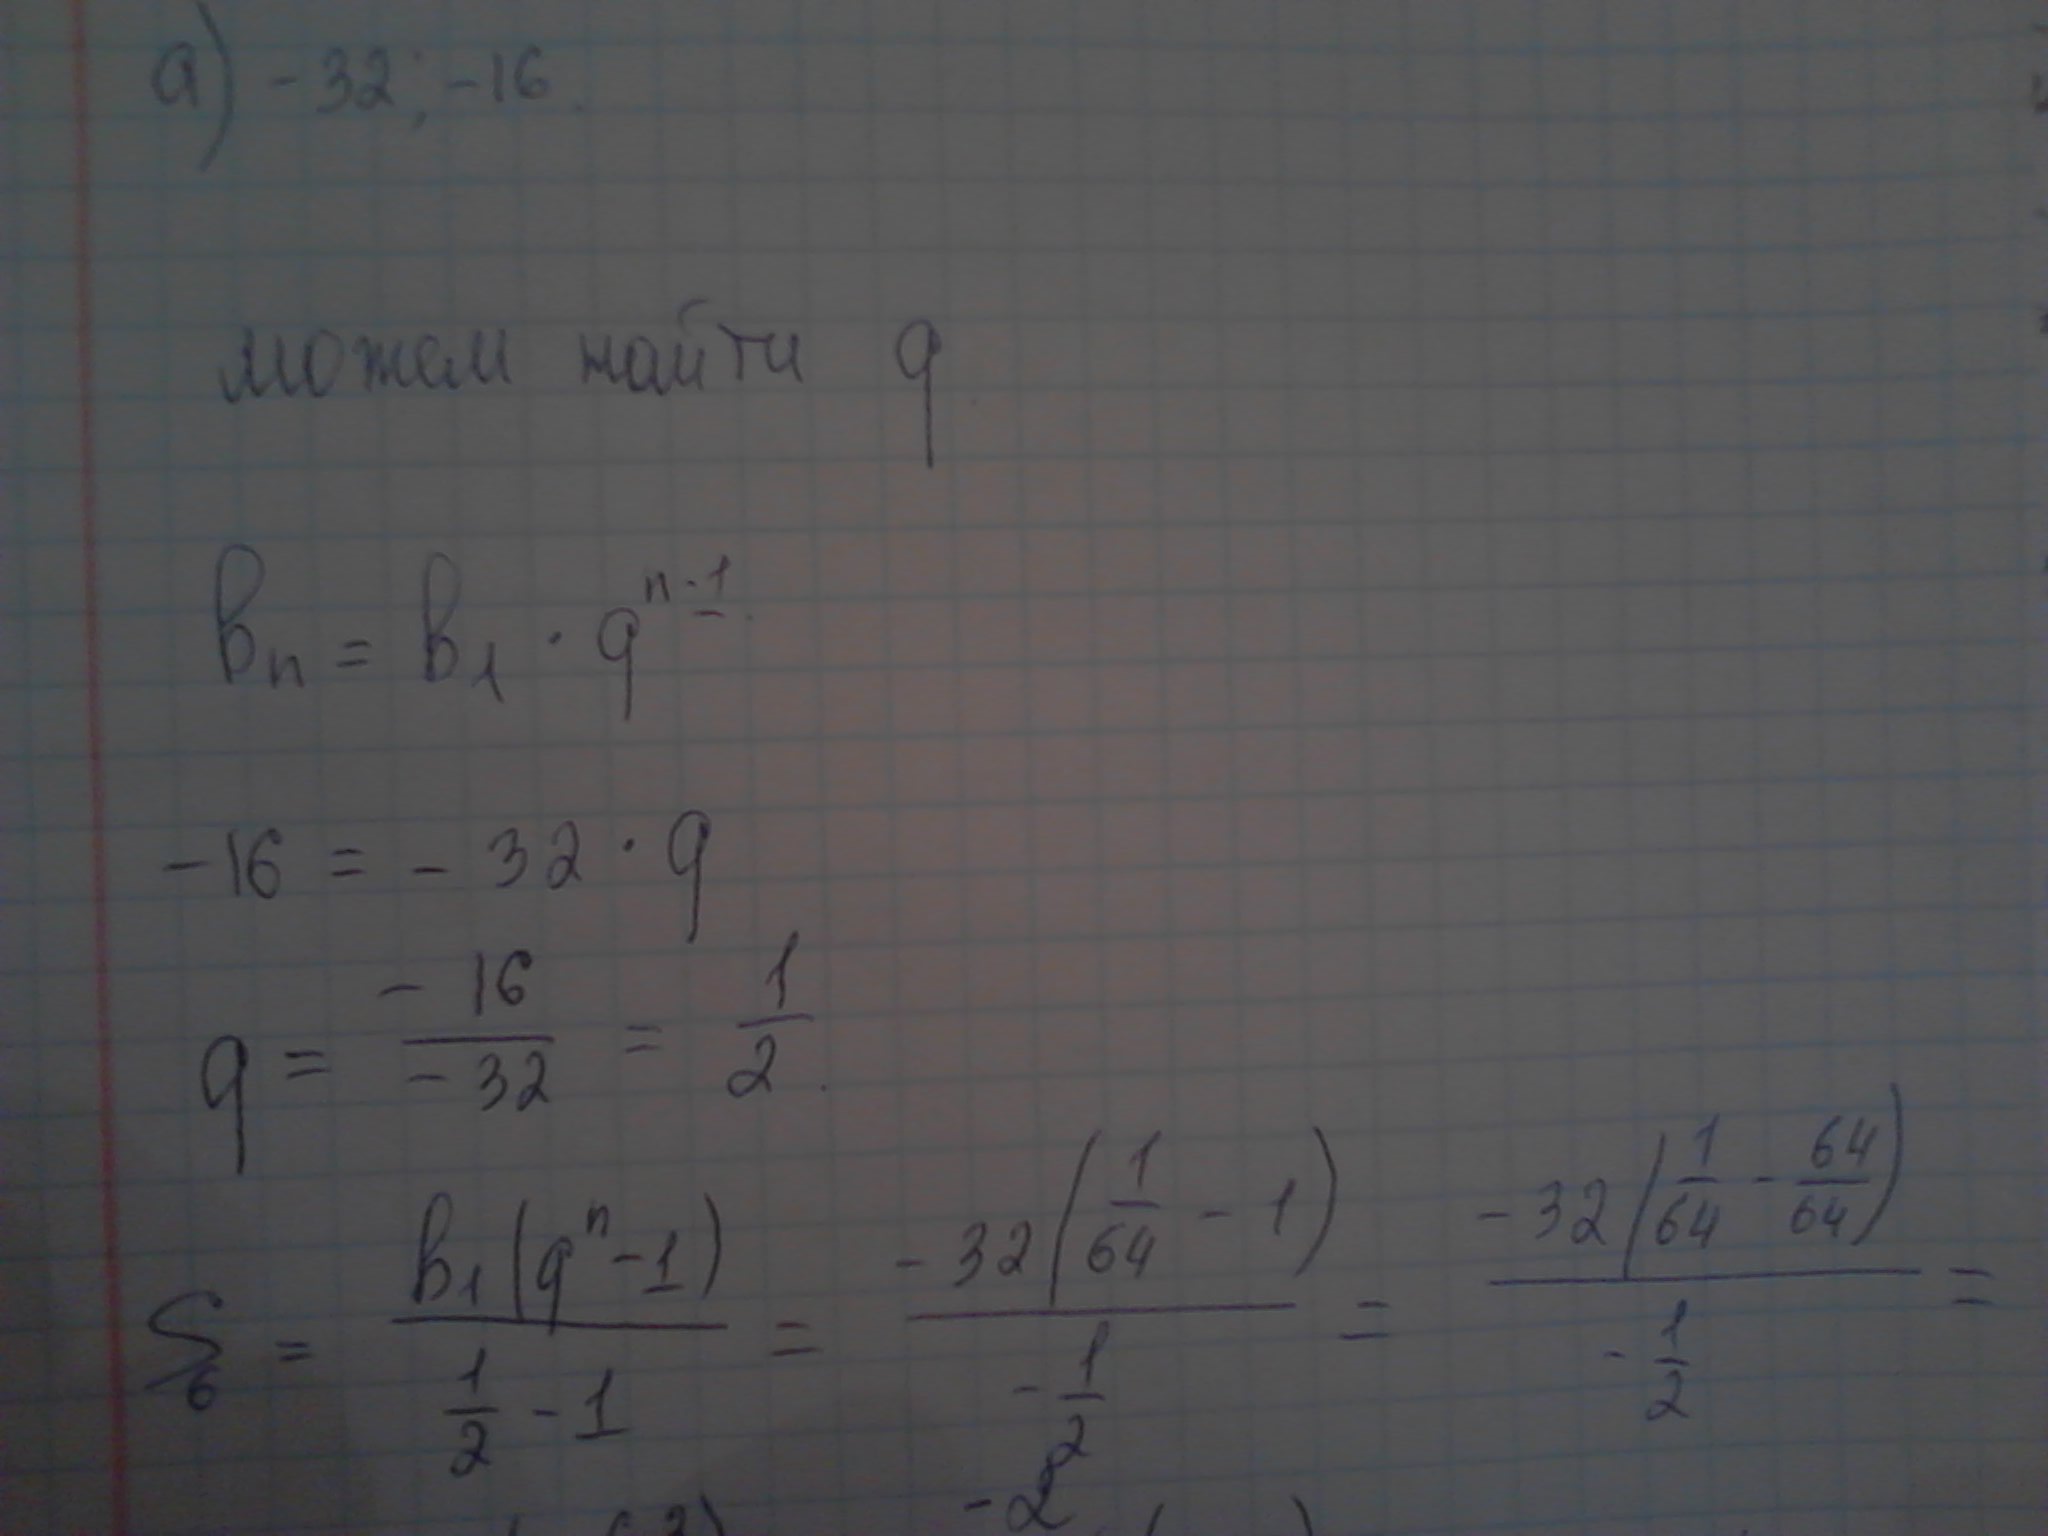 а) -32; -16.
можем найти q
bn = b1 · q^n-1
-16 = -32 · q
q = -16/-32 = 1/2.
S6 = b1(q^n-1)/(1/2 - 1) = -32(1/64 - 1)/(-1/2) = -32(1/64 - 64/64)/(-1/2) =